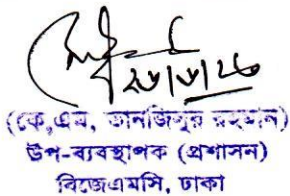 ২৬/৮/২৪
(কে,এম, তানজিলুর রহমান)
উপ-ব্যবস্থাপক (প্রশাসন)
বিজেএমসি, ঢাকা